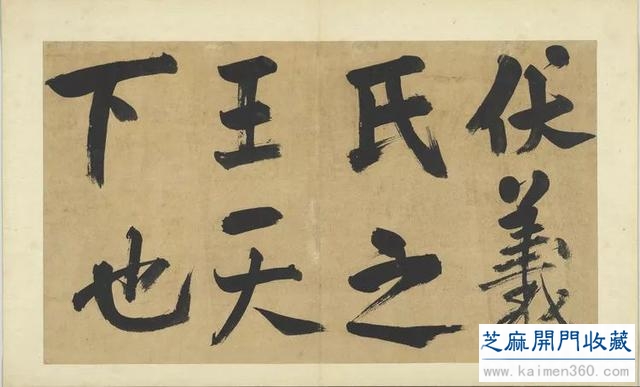 伏羲
氏之
王天
下也
芝麻開門收藏
www.kaimen360.com